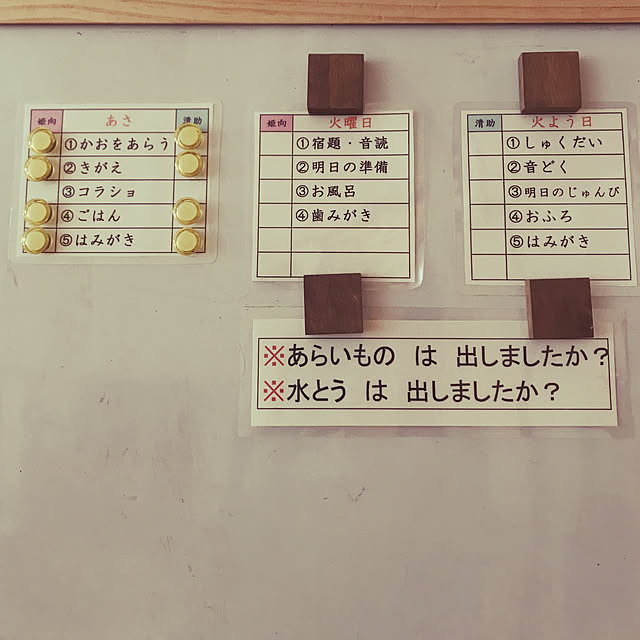 姫向 あさ 清助
①かおをあらう
②きがえ
③コラショ
④ごはん
⑤はみがき
姫向 火曜日
①宿題・音読
②明日の準備
③お風呂
④歯みがき
清助 火よう日
①しゅくだい
②音どく
③明日のじゅんび
④おふろ
⑤はみがき
※あらいもの は 出しましたか?
※水とう は 出しましたか?